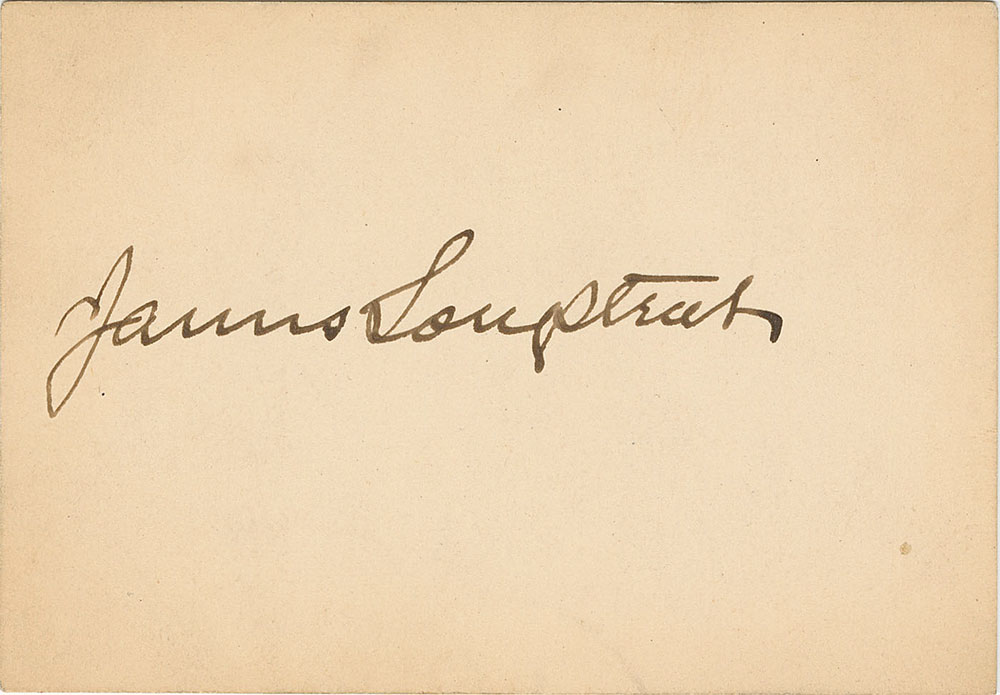 James Longstreet